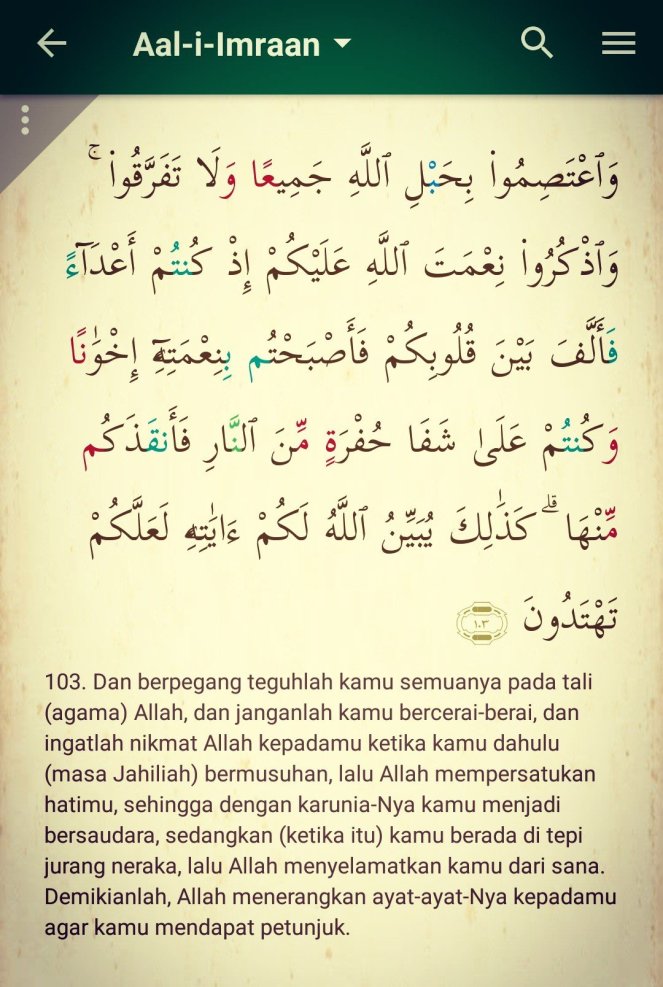 Aal-i-Imraan
وَٱعْتَصِمُوا۟ بِحَبْلِ ٱللَّهِ جَمِيعًا وَلَا تَفَرَّقُوا۟ ۚ
وَٱذْكُرُوا۟ نِعْمَتَ ٱللَّهِ عَلَيْكُمْ إِذْ كُنتُمْ أَعْدَآءً
فَأَلَّفَ بَيْنَ قُلُوبِكُمْ فَأَصْبَحْتُم بِنِعْمَتِهِۦٓ إِخْوَٰنًا
وَكُنتُمْ عَلَىٰ شَفَا حُفْرَةٍ مِّنَ ٱلنَّارِ فَأَنقَذَكُم
مِّنْهَا ۗ كَذَٰلِكَ يُبَيِّنُ ٱللَّهُ لَكُمْ ءَايَٰتِهِۦ لَعَلَّكُمْ
تَهْتَدُونَ ١٠٣
103. Dan berpegang teguhlah kamu semuanya pada tali
(agama) Allah, dan janganlah kamu bercerai-berai, dan
ingatlah nikmat Allah kepadamu ketika kamu dahulu
(masa Jahiliah) bermusuhan, lalu Allah mempersatukan
hatimu, sehingga dengan karunia-Nya kamu menjadi
bersaudara, sedangkan (ketika itu) kamu berada di tepi
jurang neraka, lalu Allah menyelamatkan kamu dari sana.
Demikianlah, Allah menerangkan ayat-ayat-Nya kepadamu
agar kamu mendapat petunjuk.